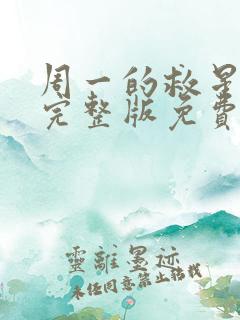 周一的救星
完整版免費
靈離墨迹
未经同意禁止转载